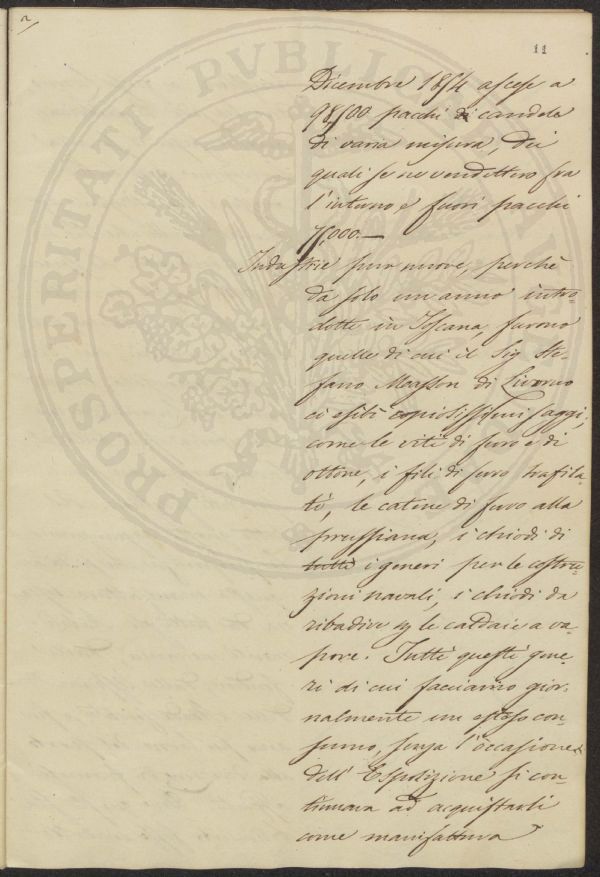 2/
11
PROSPERITATI PUBLICAE
Dicembre 1854 ascese a
98,500 pacchi di candele
di varia misura, dei
quali se ne vendettero fra
l'interno e fuori pacchi
75,000.—
Industrie pur nuove, perchè
da solo un anno intro-
dotte in Toscana, furono
quelle di cui il Sig Ste-
fano Masson di Livorno
ci esibì copiosissimi saggi,
come le viti di ferro e di
ottone, i fili di ferro trafila-
ti, le catene di ferro alla
prussiana, i chiodi di
tutti i generi per le costru-
zioni navali, i chiodi da
ribadire le caldaie a va-
pore. Tutti questi gene-
ri di cui facciamo gior-
nalmente un esteso con-
sumo, senza l'occasione
dell' Esposizione si con-
tinuava ad acquistarli
come manifattura